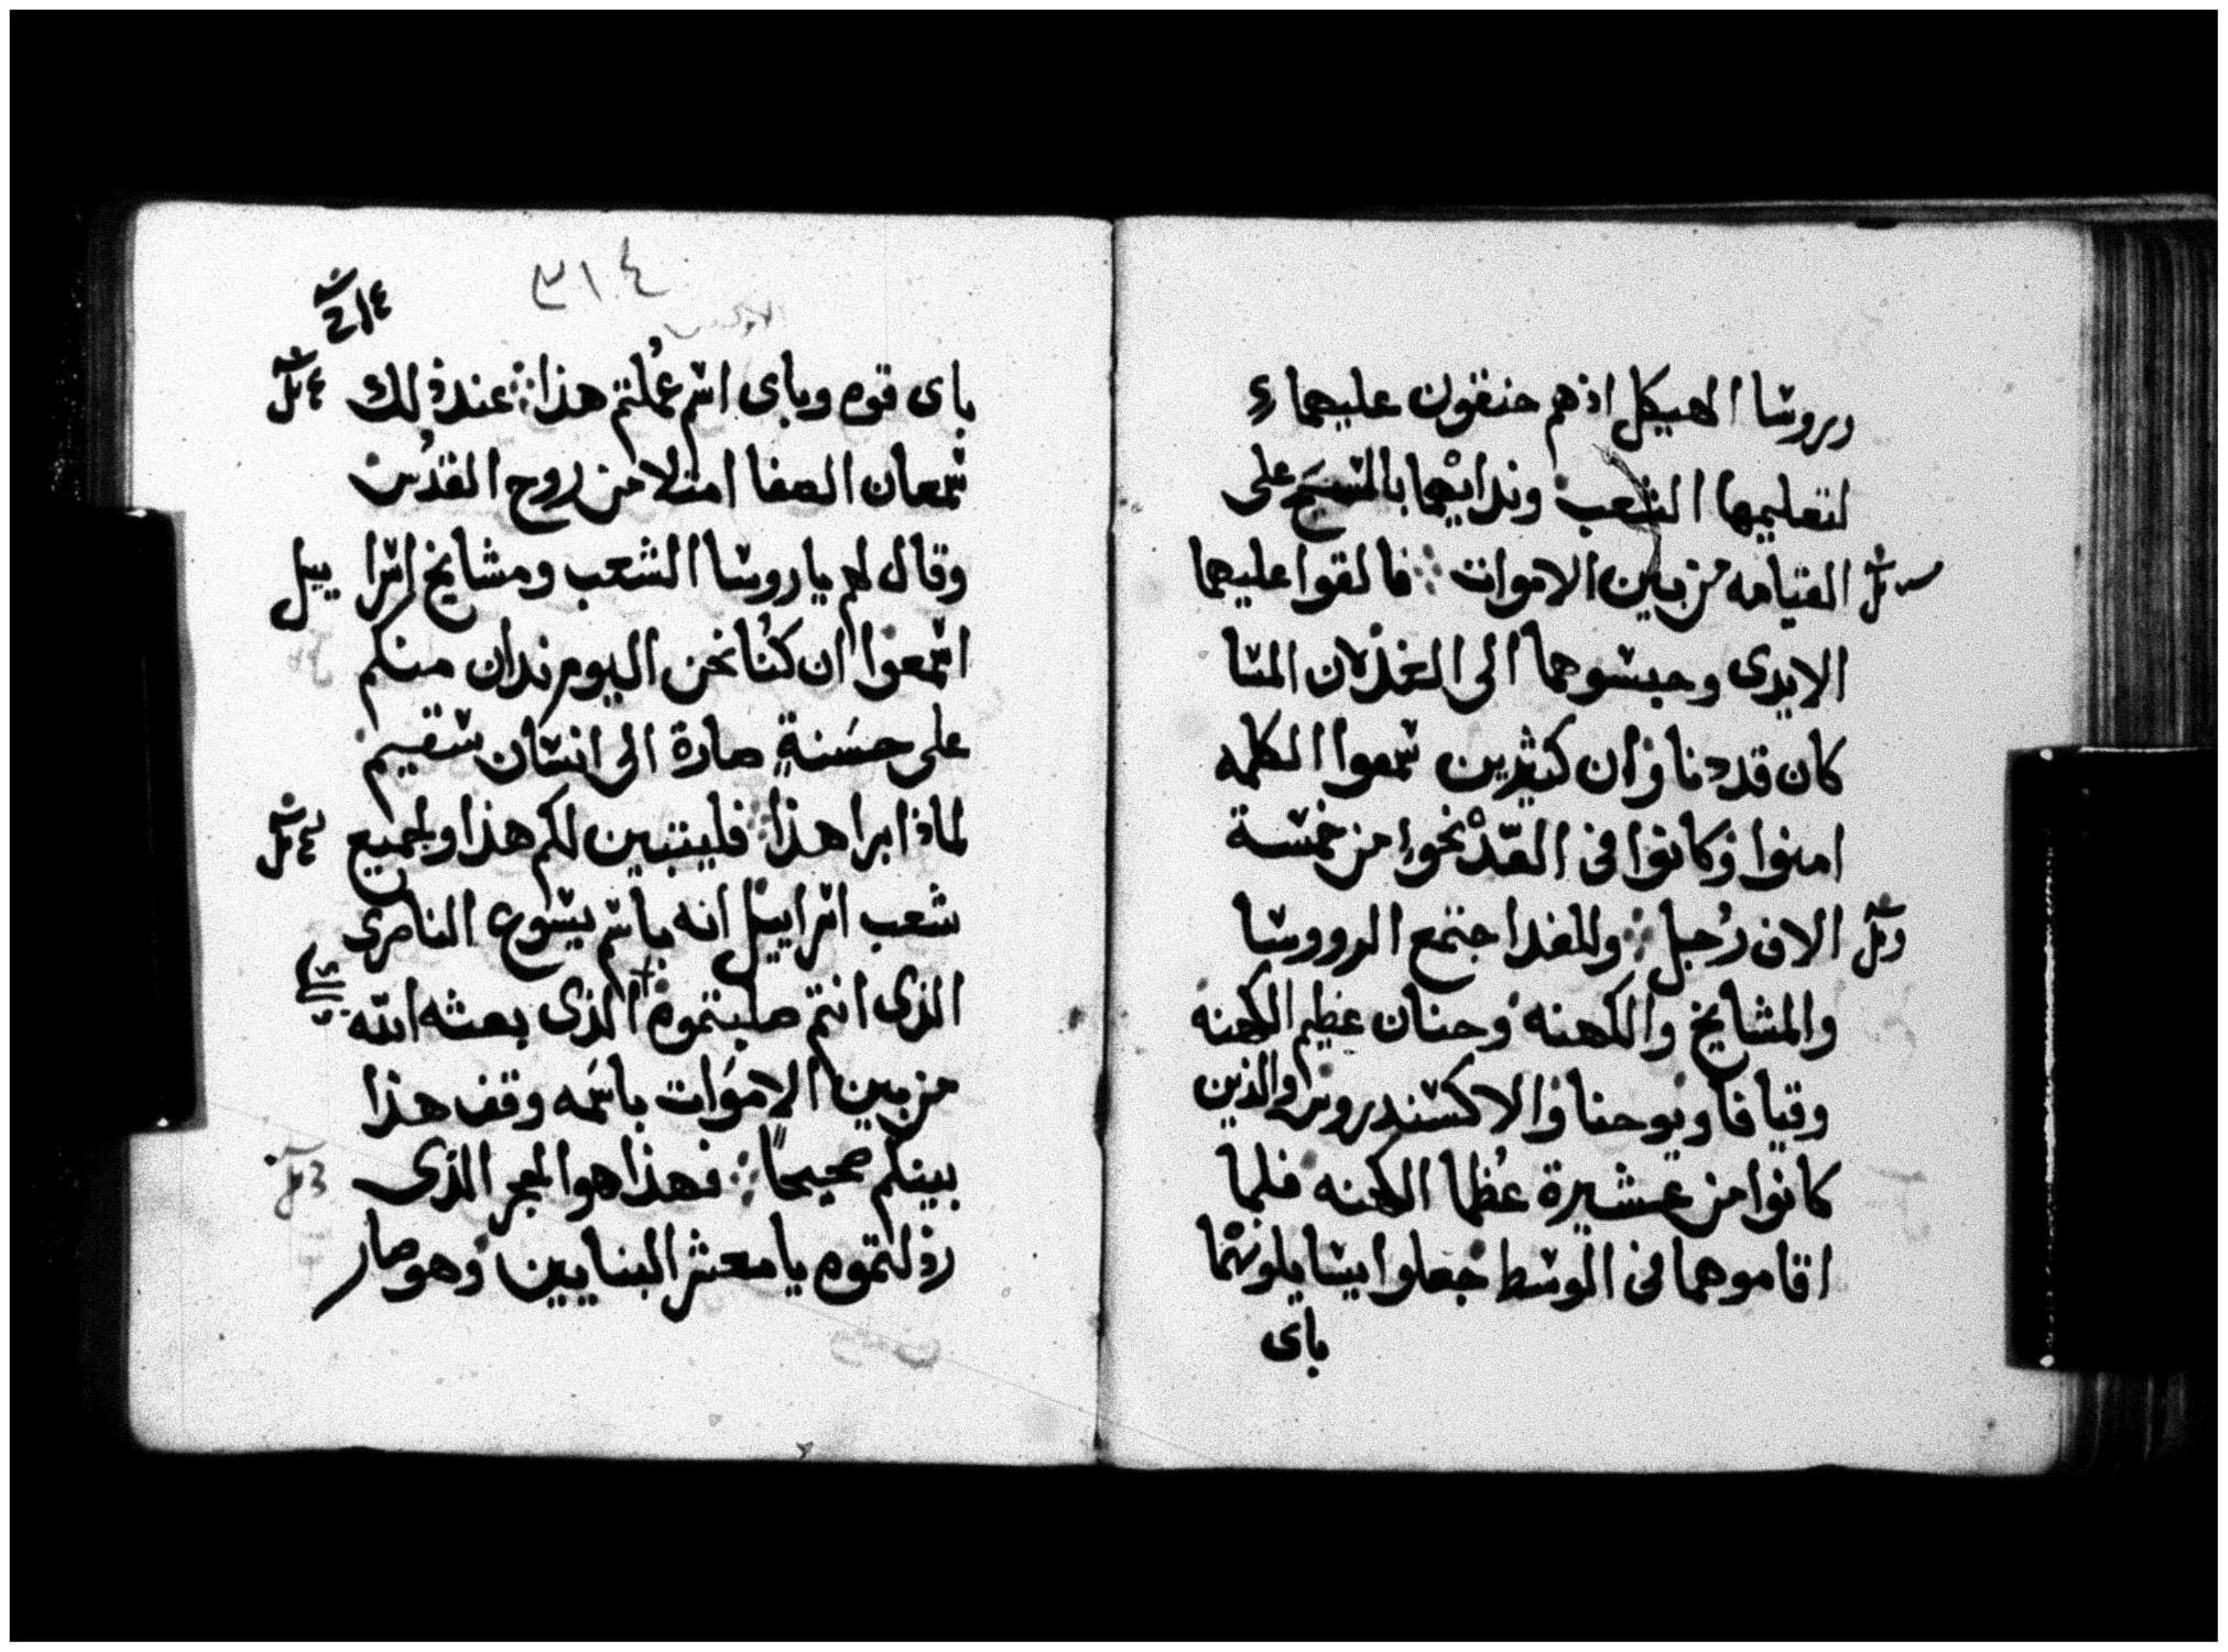 وروسا الهيكل اذهم حنقون عليهما
لتعليمها الشعب وندايهما بالمسيح على
القيامه من بين الاموات فالقوا عليهما
الايدى وحبسوهما الى الغد لان المسا
كان قد دنا وان كثيرين سمعوا الكلمه
امنوا وكانوا فى العدد نحو من خمسة
الاف رجل وللغد اجتمع الرووسا
والمشايخ والكهنه وحنان عظيم الكهنه
وقيافا ويوحنا والاكسندروس والذين
كانوا من عشيرة عظما الكهنه فلما
اقاموهما فى الوسط جعلوا يسايلونهما
باى
٣١٤
باى قوه وباى اسم عملتم هذا عند ذلك
سمعان الصفا امتلا من روح القدس
وقال لهم يا روسا الشعب ومشايخ اسراييل
اسمعوا ان كنا نحن اليوم ندان منكم
على حسنة صارة الى انسان سقيم
لماذا برا هذا فليتبين لكم هذا ولجميع
شعب اسراييل انه باسم يسوع الناصرى
الذى انتم صلبتموه الذى بعثه الله
من بين الاموات باسمه وقف هذا
بينكم صحيحاً فهذا هو الحجر الذى
رذلتموه يا معشر البنايين وهو صار